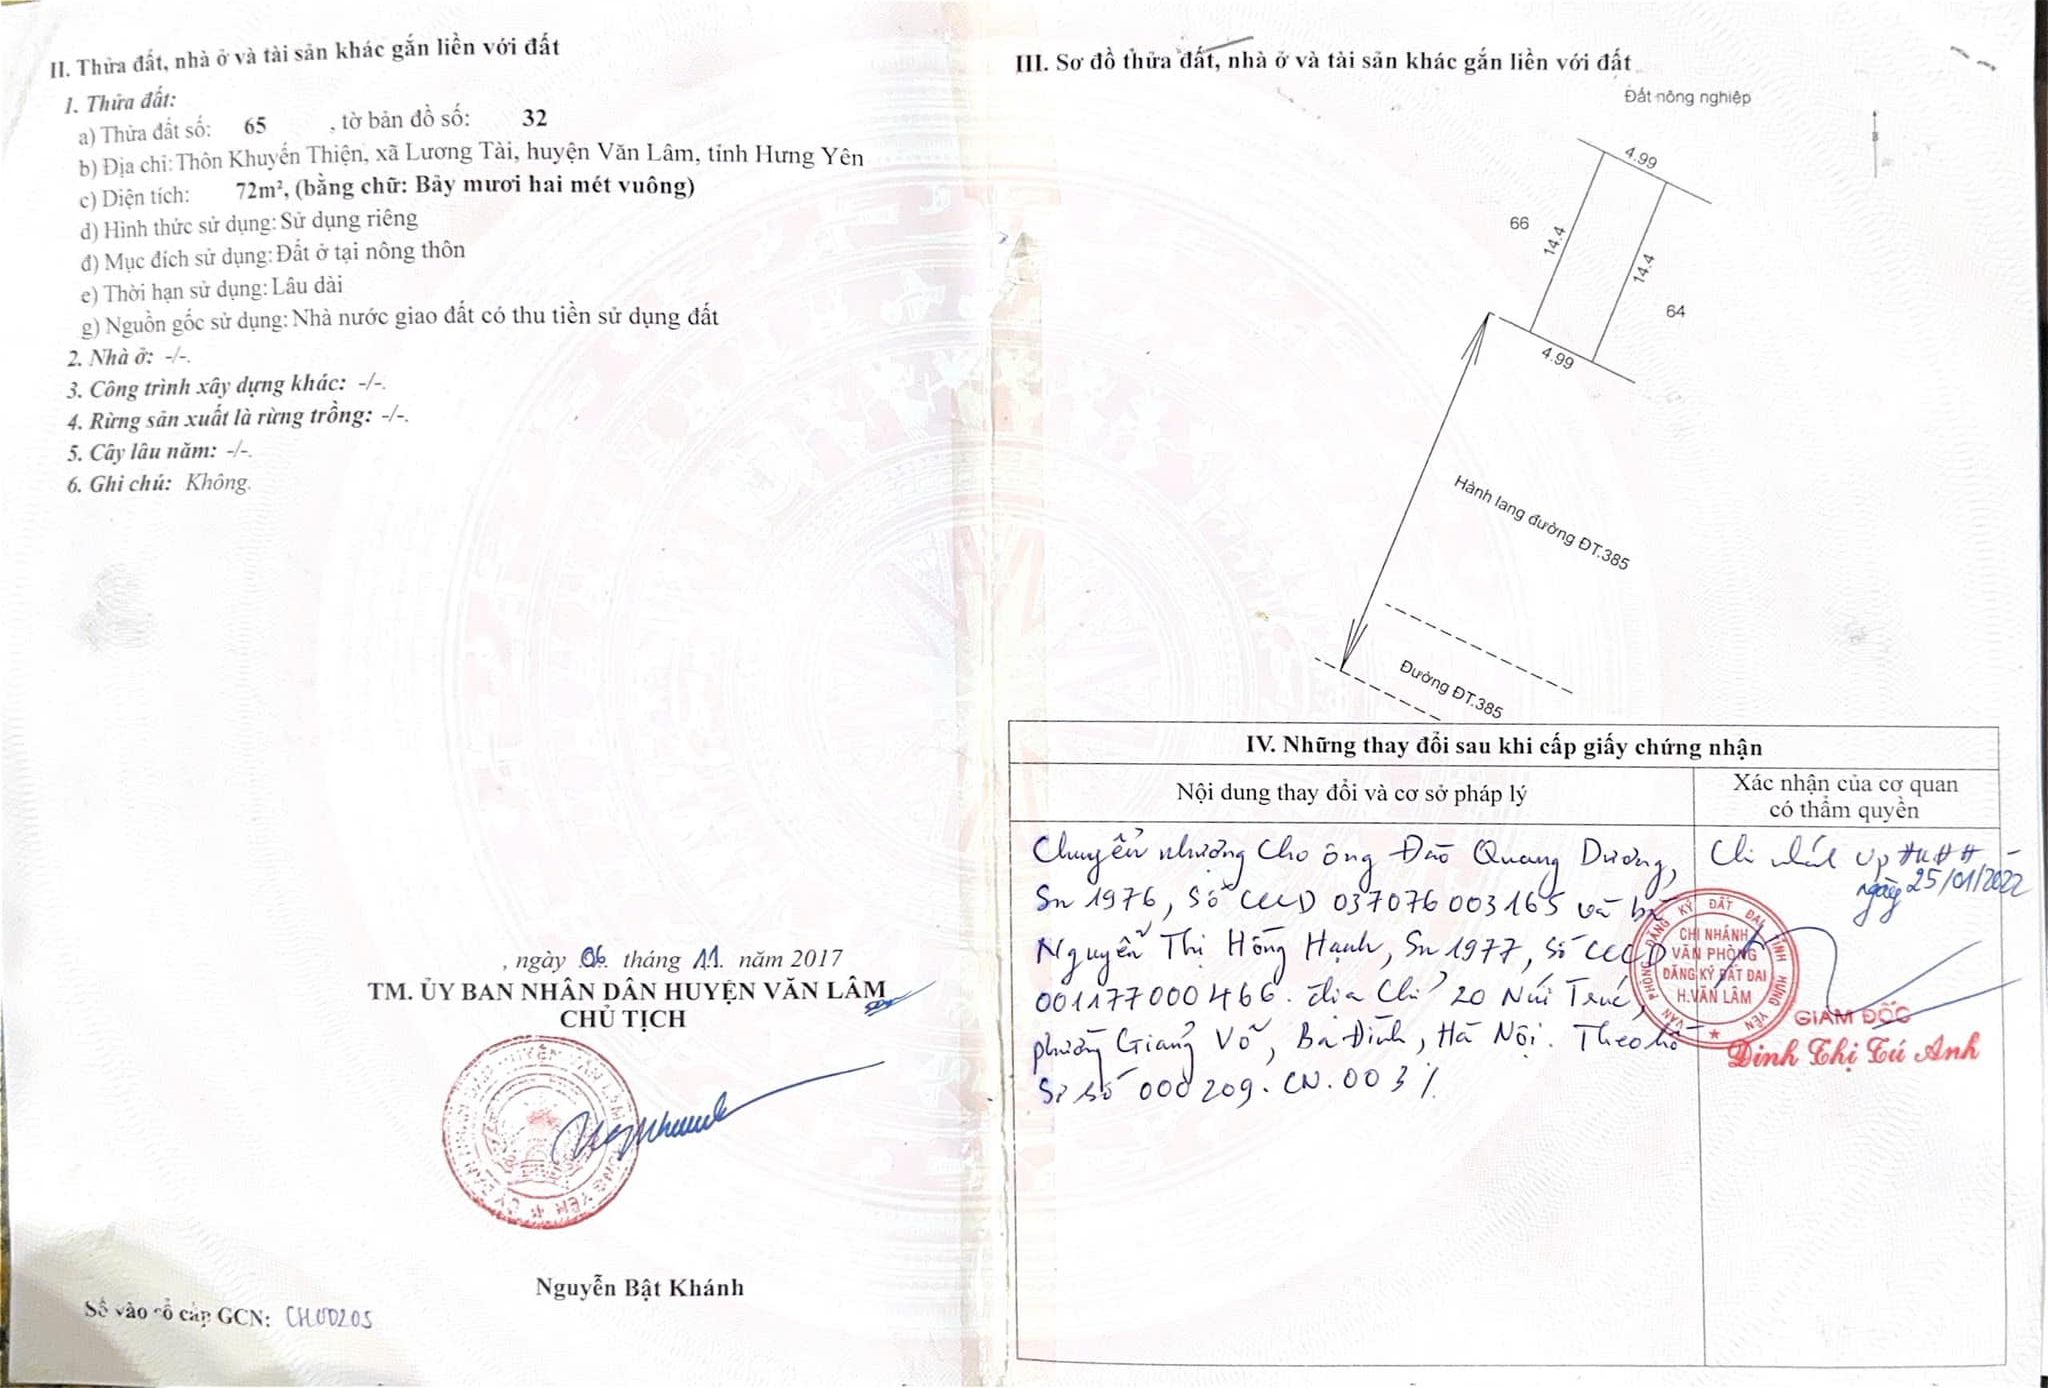 II. Thửa đất, nhà ở và tài sản khác gắn liền với đất
1. Thửa đất:
a) Thửa đất số: 65 , tờ bản đồ số: 32
b) Địa chỉ: Thôn Khuyến Thiện, xã Lương Tài, huyện Văn Lâm, tỉnh Hưng Yên
c) Diện tích: 72m², (bằng chữ: Bảy mươi hai mét vuông)
d) Hình thức sử dụng: Sử dụng riêng
đ) Mục đích sử dụng: Đất ở tại nông thôn
e) Thời hạn sử dụng: Lâu dài
g) Nguồn gốc sử dụng: Nhà nước giao đất có thu tiền sử dụng đất
2. Nhà ở: -/-.
3. Công trình xây dựng khác: -/-.
4. Rừng sản xuất là rừng trồng: -/-.
5. Cây lâu năm: -/-.
6. Ghi chú: Không.
, ngày 06 tháng 11 năm 2017
TM. ỦY BAN NHÂN DÂN HUYỆN VĂN LÂM
CHỦ TỊCH
Nguyễn Bật Khánh
Số vào sổ cấp GCN: CH00205
III. Sơ đồ thửa đất, nhà ở và tài sản khác gắn liền với đất
Đất nông nghiệp
4.99
66
14.4
14.4
64
4.99
Hành lang đường ĐT.385
Đường ĐT.385
IV. Những thay đổi sau khi cấp giấy chứng nhận
Nội dung thay đổi và cơ sở pháp lý
Xác nhận của cơ quan
có thẩm quyền
Chuyển nhượng cho ông Đào Quang Dương,
Sn 1976, Số CCCD 037076003165 và bà
Nguyễn Thị Hồng Hạnh, Sn 1977, Số CCCD
001177000466. Địa chỉ 20 Núi Trúc,
phường Giảng Võ, Ba Đình, Hà Nội. Theo hồ
sơ số 000209.CN.003
Chi nhánh VP
ngày 25/01/2022
VĂN PHÒNG ĐĂNG KÝ ĐẤT ĐAI TỈNH HƯNG YÊN
CHI NHÁNH
VĂN PHÒNG
ĐĂNG KÝ ĐẤT ĐAI
H.VĂN LÂM
GIÁM ĐỐC
Đinh Thị Tú Anh